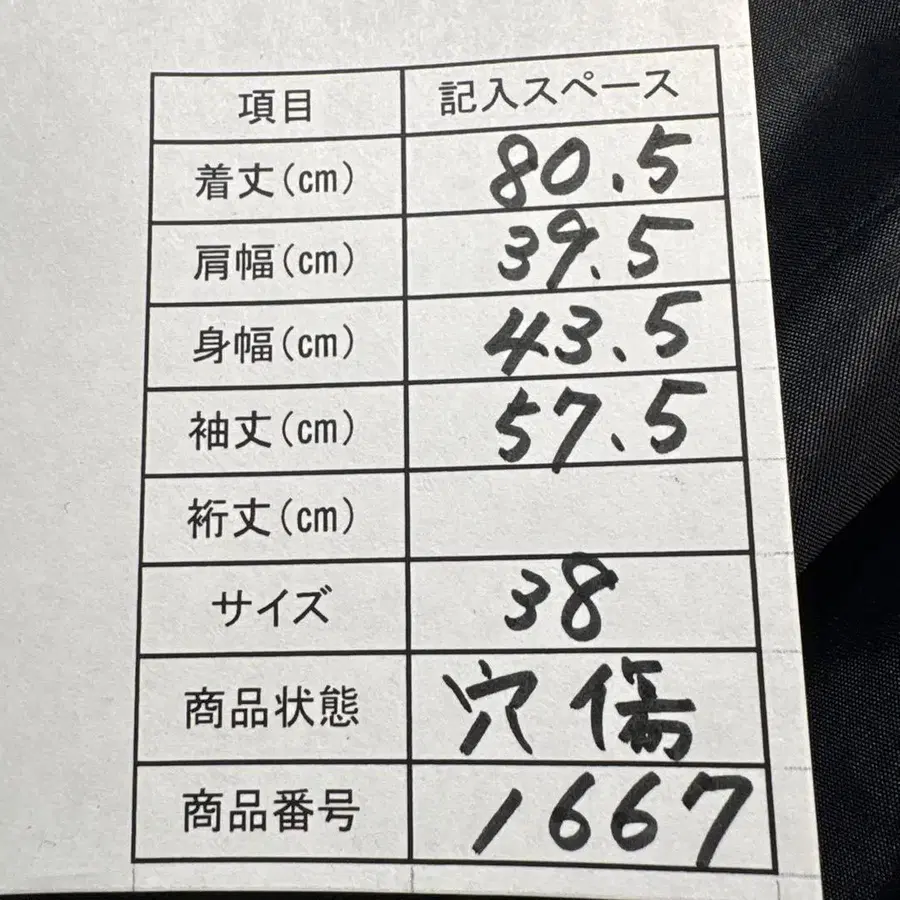 項目 記入スペース
着丈(cm) 80.5
肩幅(cm) 39.5
身幅(cm) 43.5
袖丈(cm) 57.5
裄丈(cm)
サイズ 38
商品状態 穴 傷
商品番号 1667